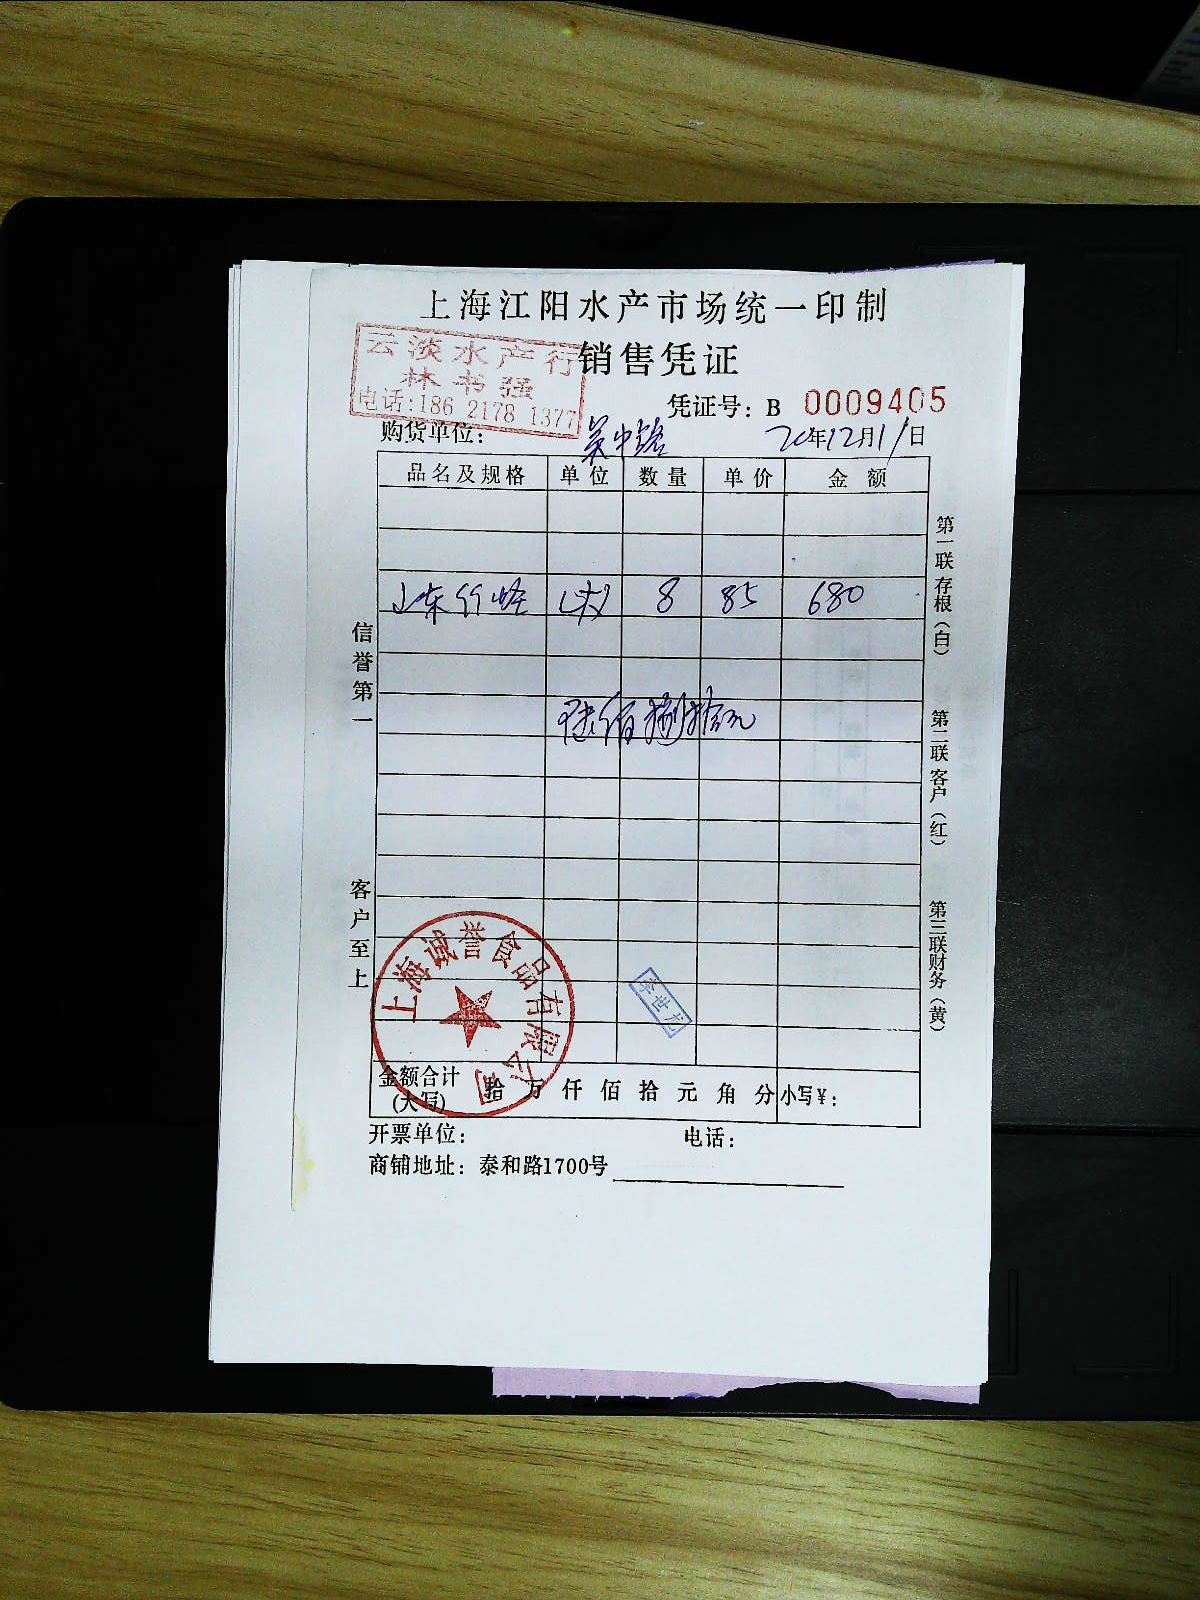 上海江阳水产市场统一印制
销售凭证
云淡水产行
林书强
电话:186 2178 1377
凭证号: B 0009405
购货单位: 吴中路 20年12月11日
品名及规格 单位 数量 单价 金额
山东竹蛏 8 85 680
陆佰捌拾元
信誉第一
客户至上
第一联存根(白)
第二联客户(红)
第三联财务(黄)
上海诚誉食品有限公司
李世龙
金额合计(大写) 拾 万 仟 佰 拾 元 角 分 小写¥:
开票单位: 电话:
商铺地址: 泰和路1700号